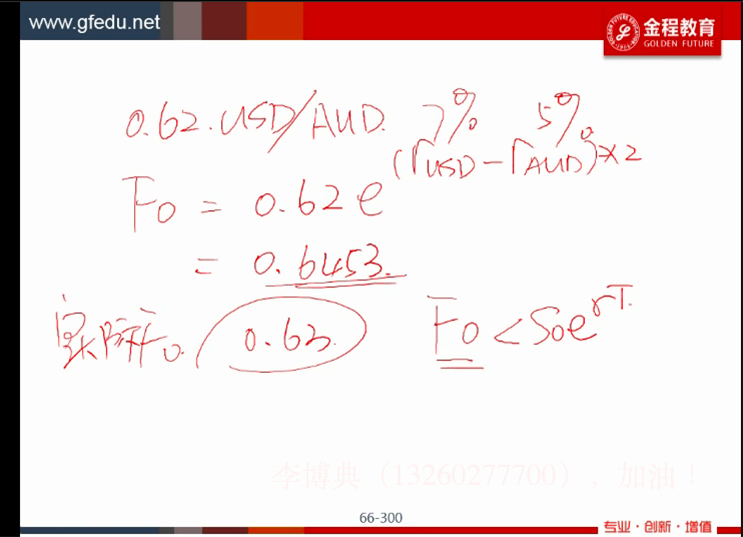 www.gfedu.net
金程教育
GOLDEN FUTURE
0.62. USD/AUD. 7% 5%
F0 = 0.62 e^(rUSD - rAUD)×2
= 0.6453.
实际F0. 0.63. F0 < S0e^rT.
李博典（13260277700），加油！
66-300
专业·创新·增值